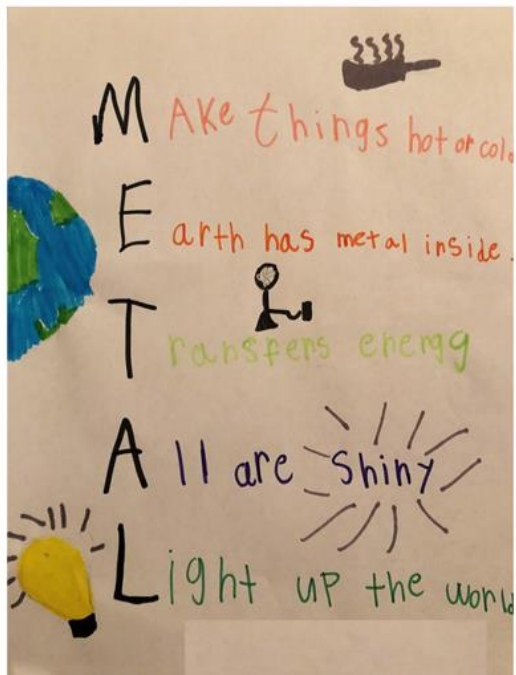 MAKe things hot or cold
Earth has metal inside.
Transfers energy
All are Shiny
Light up the world